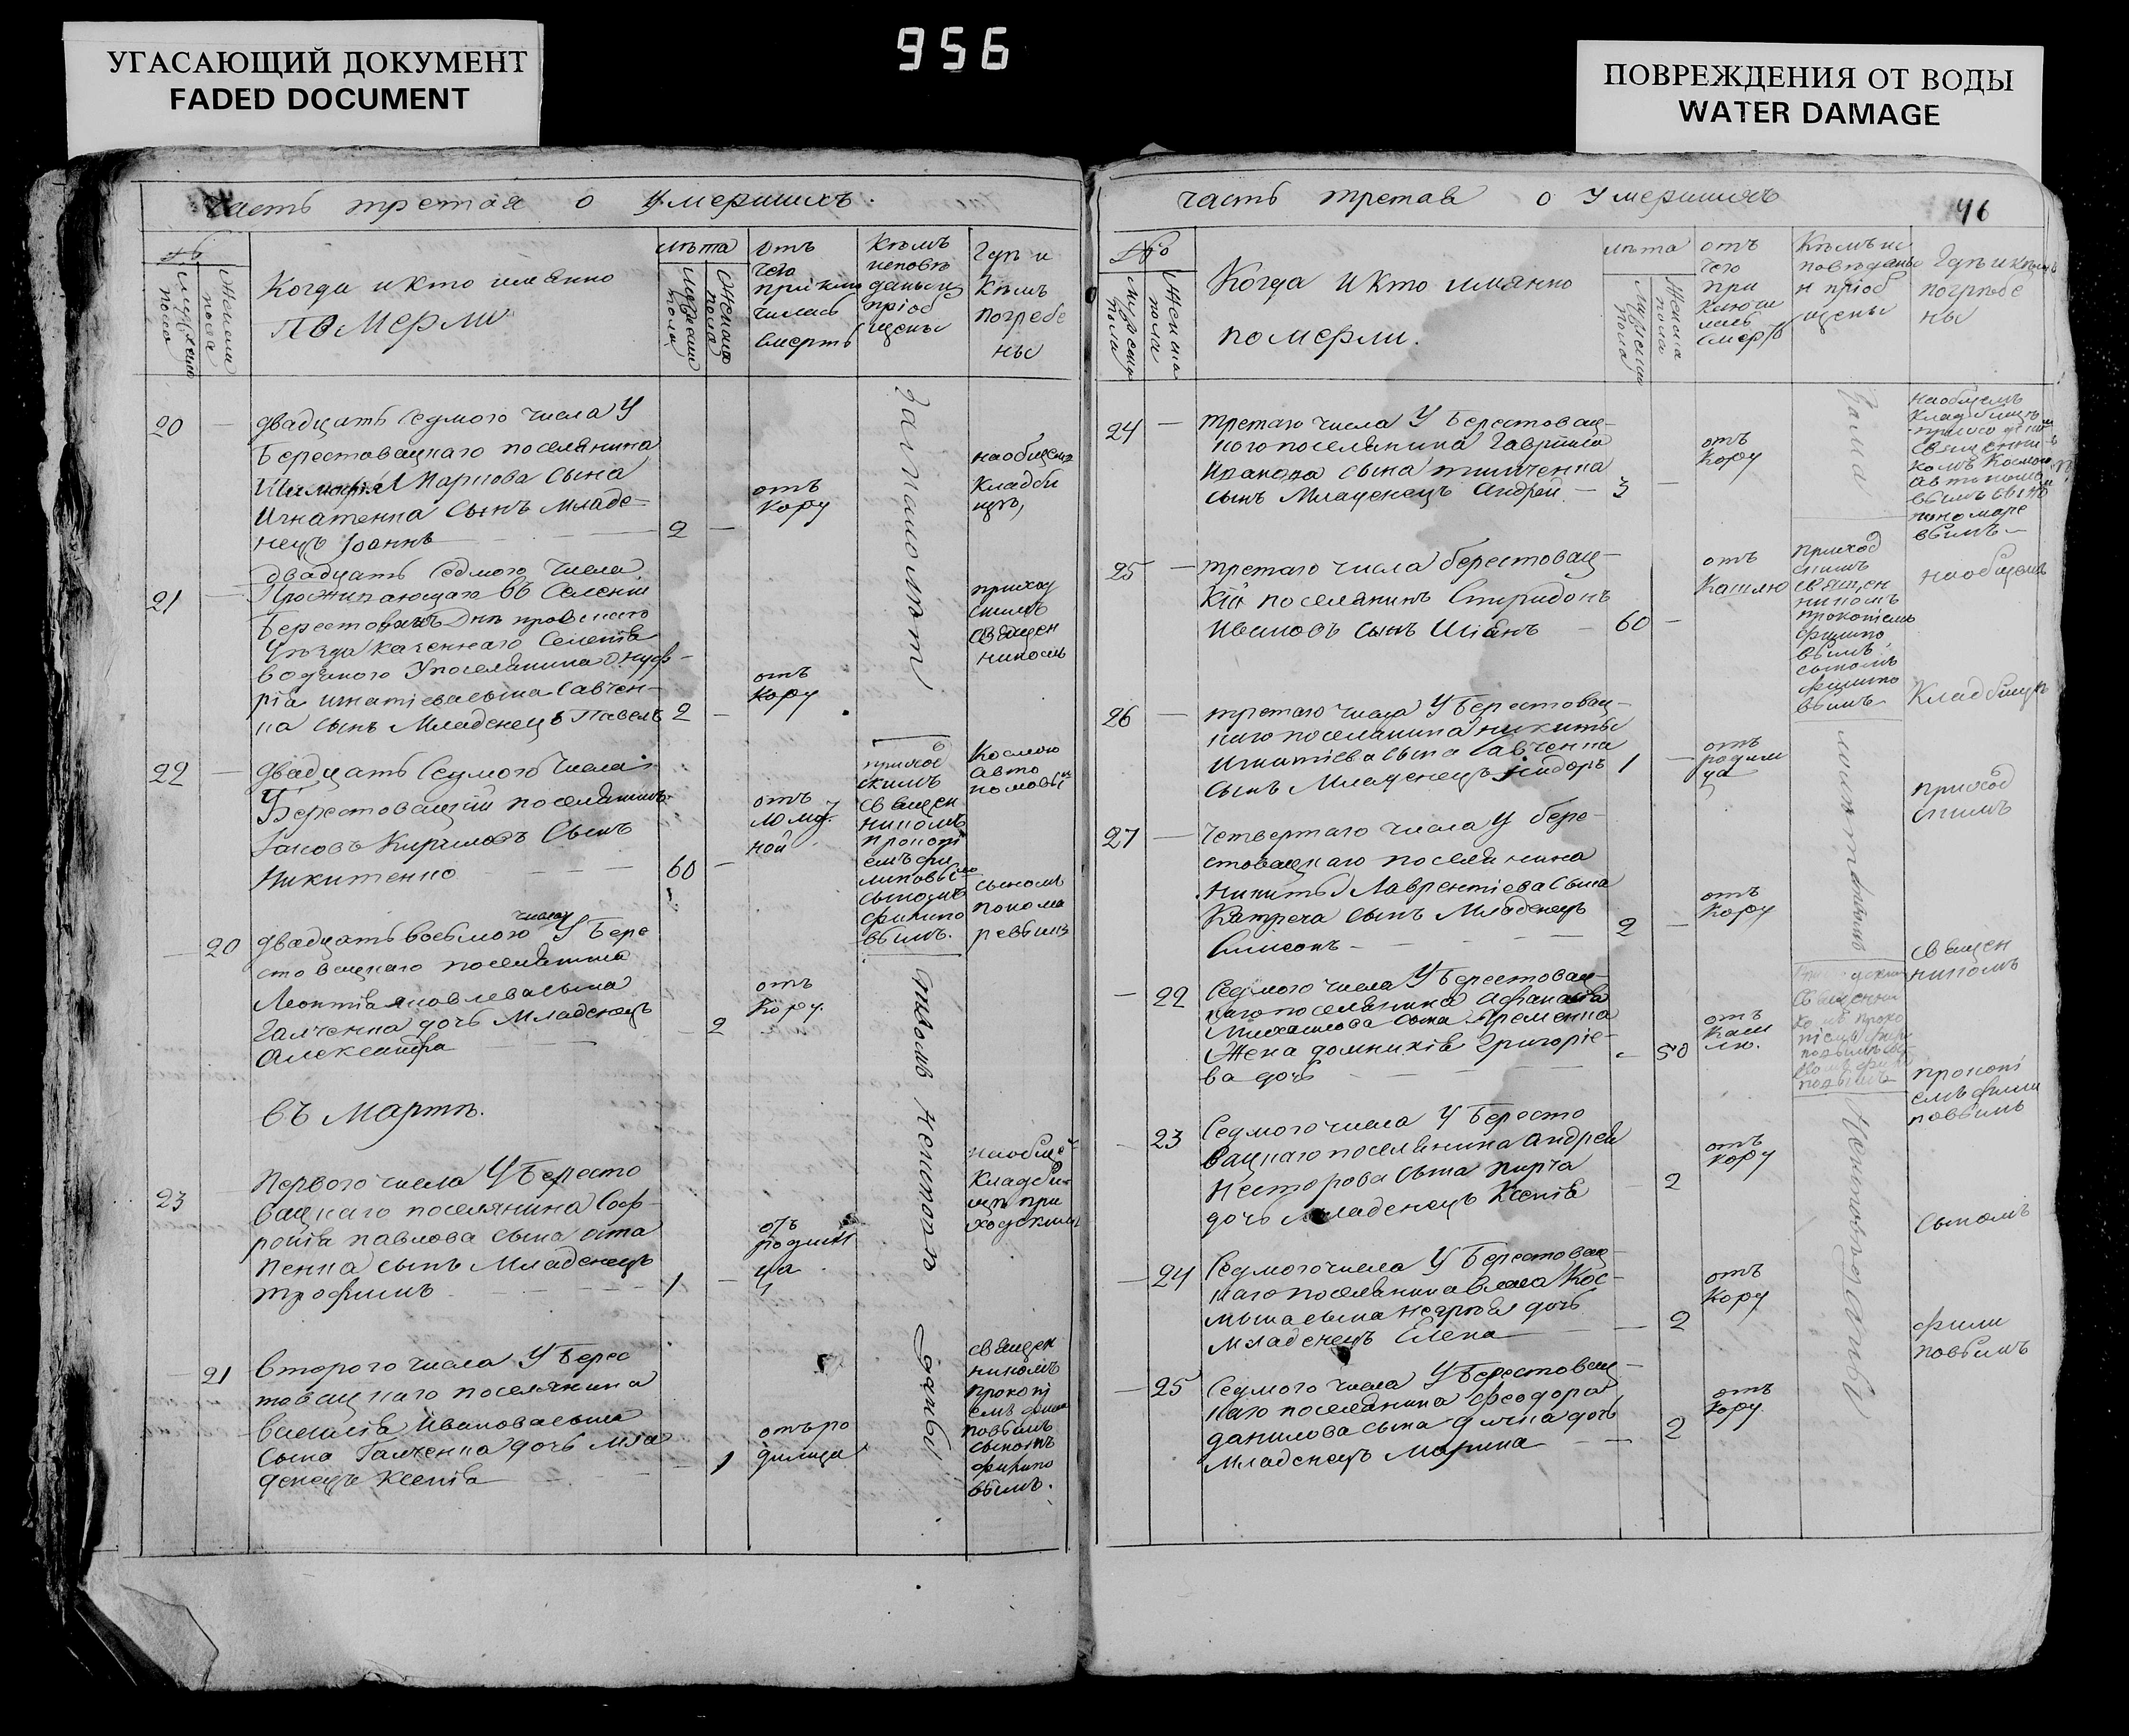 УГАСАЮЩИЙ ДОКУМЕНТ
FADED DOCUMENT
956
ПОВРЕЖДЕНИЯ ОТ ВОДЫ
WATER DAMAGE
Часть третая о Умершихъ.
Когда и кто имянно
померли
лѣта
Отъ
чего
приклю
чилась
Смерть
Кѣмъ
исповѣ
даны и
пріоб
щены
Гдѣ и
Кѣмъ
погребе
ны
20 — двадцать седмого числа У
Берестовацкаго поселянина
Марнова сына
Игнатенка Сынъ Младе-
нецъ Іоаннъ — 2 —
отъ
кору
на общемъ
Кладби
щѣ,
21 — двадцать седмого числа
Проживающаго въ Селеніи
Уѣзда казеннаго Селенія
У поселянина Онуф-
рія игнатіева сына Савчен-
ка сынъ Младенецъ Павелъ 2 —
отъ
кору
приход
скимъ
Священ
никомъ
22 — двадцать Седмого Числа
Берестовацкій поселянинъ
Іаковъ Кириловъ Сынъ
Никитенко — 60 —
отъ
ной
приход
скимъ
священ
никомъ
прокопі
емъ фи
липовы
сыномъ
филипо
вымъ.
Космою
авто
номовы
сыномъ
понома
ревымъ
— 20 двадцать восьмого числа У Бере
стовацкаго поселянина
Леонтія яковлева сына
Галченка дочь Младенецъ
Александра — 2
отъ
Кору.
въ Мартѣ.
23 Первого числа У Бересто
вацкаго поселянина Соф-
ронія павлова сына
сынъ Младенецъ
трофимъ — 1 —
отъ
родим
ца
на общем
Кладби
щѣ при
ходским
— 21 Второго числа У Берес
товацкаго поселянина
василія Иванова сына
сына Галченка дочь мла
денецъ Ксенія — 1
отъ ро
димца
священ
никомъ
прокопі
емъ фили
повымъ
сыномъ
филипо
вымъ.
за малолѣт
ствомъ неисповѣ
даны
часть третая о Умершихъ
46
Когда и кто имянно
померли.
лѣта
отъ
чего
при
ключи
лась
смерть
Кѣмъ ис
повѣданы
и пріоб
щены
Гдѣ и кѣмъ
погребе
ны
24 — третаго числа У Берестовац-
кого поселянина Гаврила
сына тимченка
сынъ Младенецъ Андрей — 3 —
отъ
кору
на общемъ
кладбищѣ
священни
комъ Космою
автоном
вымъ сыно
пономаре
вымъ
25 — третаго числа берестовац-
кій поселянинъ Спиридонъ
Ивановъ сынъ — 60 —
отъ
Кашлю
приход
скимъ
священ
никомъ
прокопіемъ
филипо
вымъ
сыномъ
филипо
вымъ
на общемъ
Кладбищѣ
26 — третаго числа У Берестовац-
каго поселянина никиты
Игнатіева сына Савченка
сынъ Младенецъ 1 —
отъ
родим
ца
приход
скимъ
27 — Четвертаго числа У бере-
стовацкаго поселянина
Никиты Лаврентіева сына
сынъ Младенецъ
Симеонъ — 2 —
отъ
кору
священ
никомъ
— 22 Седмого числа У Берестовац-
каго поселянина Афанасія
Михаилова сына Яременка
Жена домникія Григоріе-
ва дочь — 50
отъ
каш
лю.
прокопі
емъ фили
повымъ
— 23 Седмого числа У Бересто
вацкаго поселянина Андрея
Несторова сына кирча
дочь младенецъ Ксенія — 2
отъ
кору
сыномъ
— 24 Седмого числа У Берестовац-
каго поселянина власа Кос-
мына сына дочь
младенецъ Елена — 2
отъ
кору
фили
повымъ
— 25 Седмого числа У Берестовац-
каго поселянина Феодора
данилова сына дочь
младенецъ Марина — 2
отъ
кору